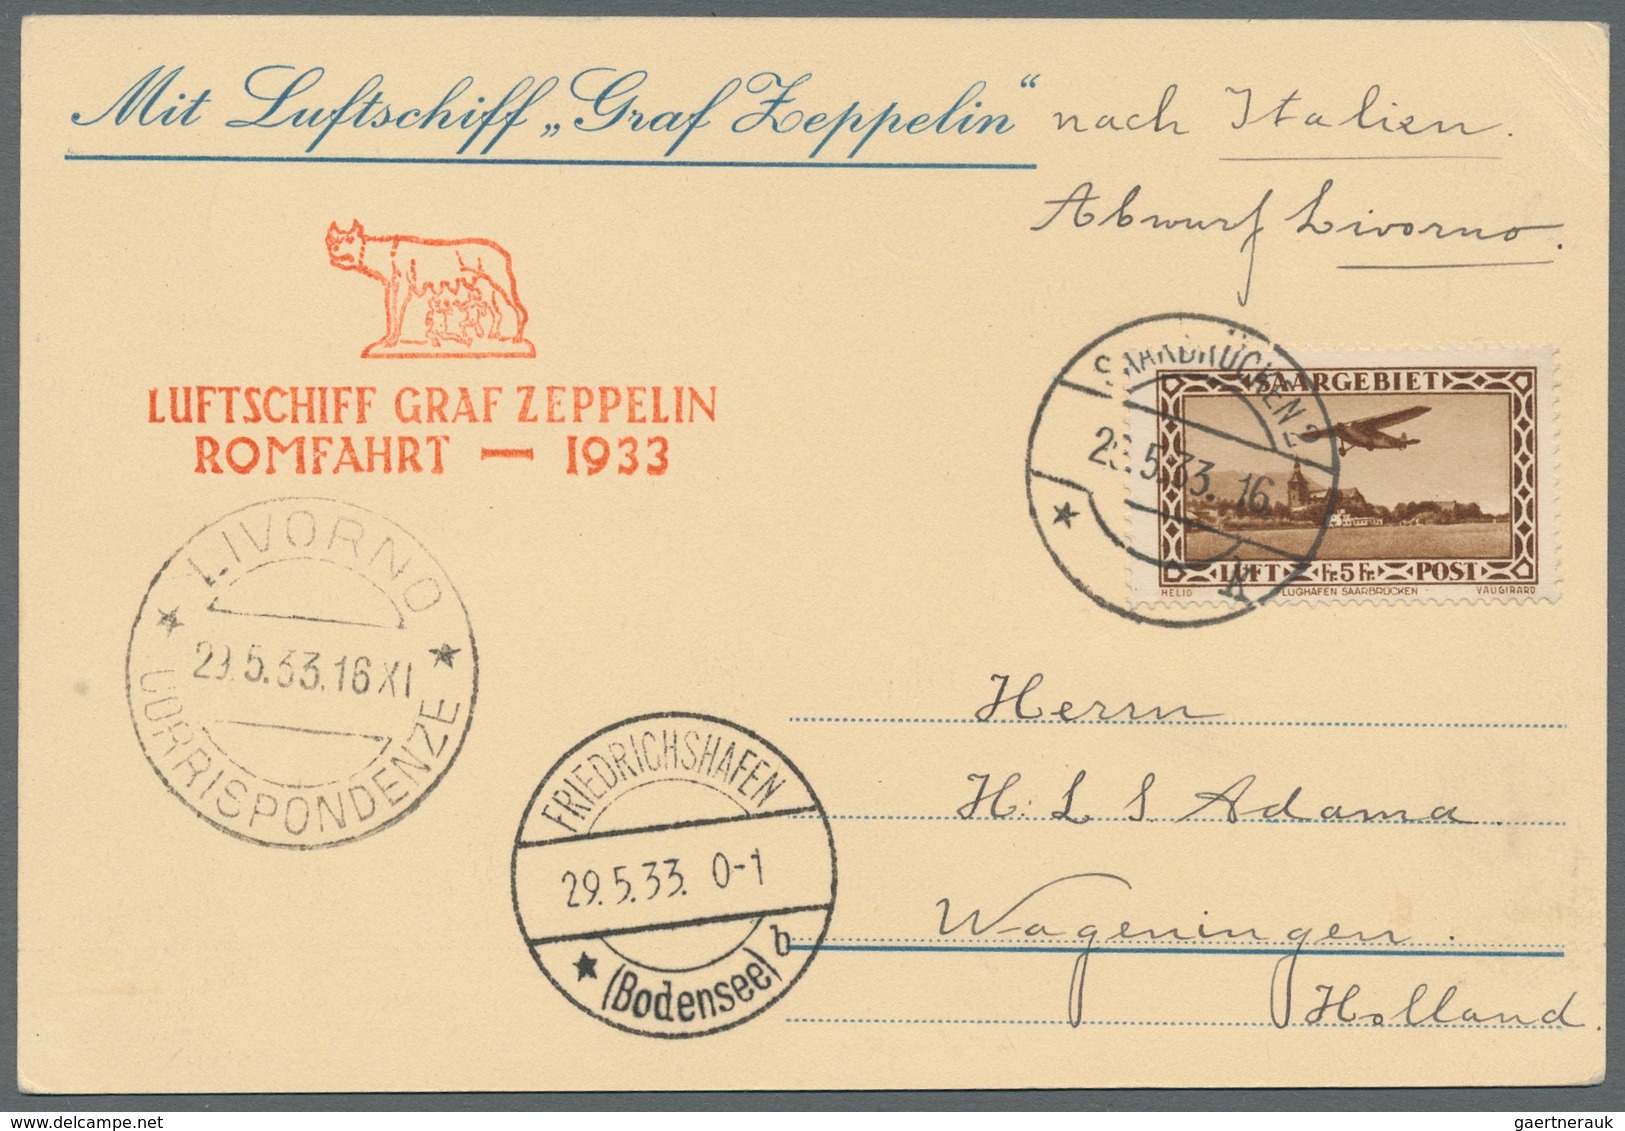 Mit Luftschiff „Graf Zeppelin“ nach Italien.
Abwurf Livorno.
LUFTSCHIFF GRAF ZEPPELIN
ROMFAHRT — 1933
SAARBRÜCKEN 2
28.5.33. 16
* k
SAARGEBIET
LUFT Fr. 5 Fr. POST
HELIO FLUGHAFEN SAARBRÜCKEN VAUGIRARD
LIVORNO
29.5.33.16 XI
CORRISPONDENZE
FRIEDRICHSHAFEN
29.5.33. 0-1
* (Bodensee) b
Herrn
H. L. S. Adama.
Wageningen.
Holland.
gaertnerauk@delcampe.net